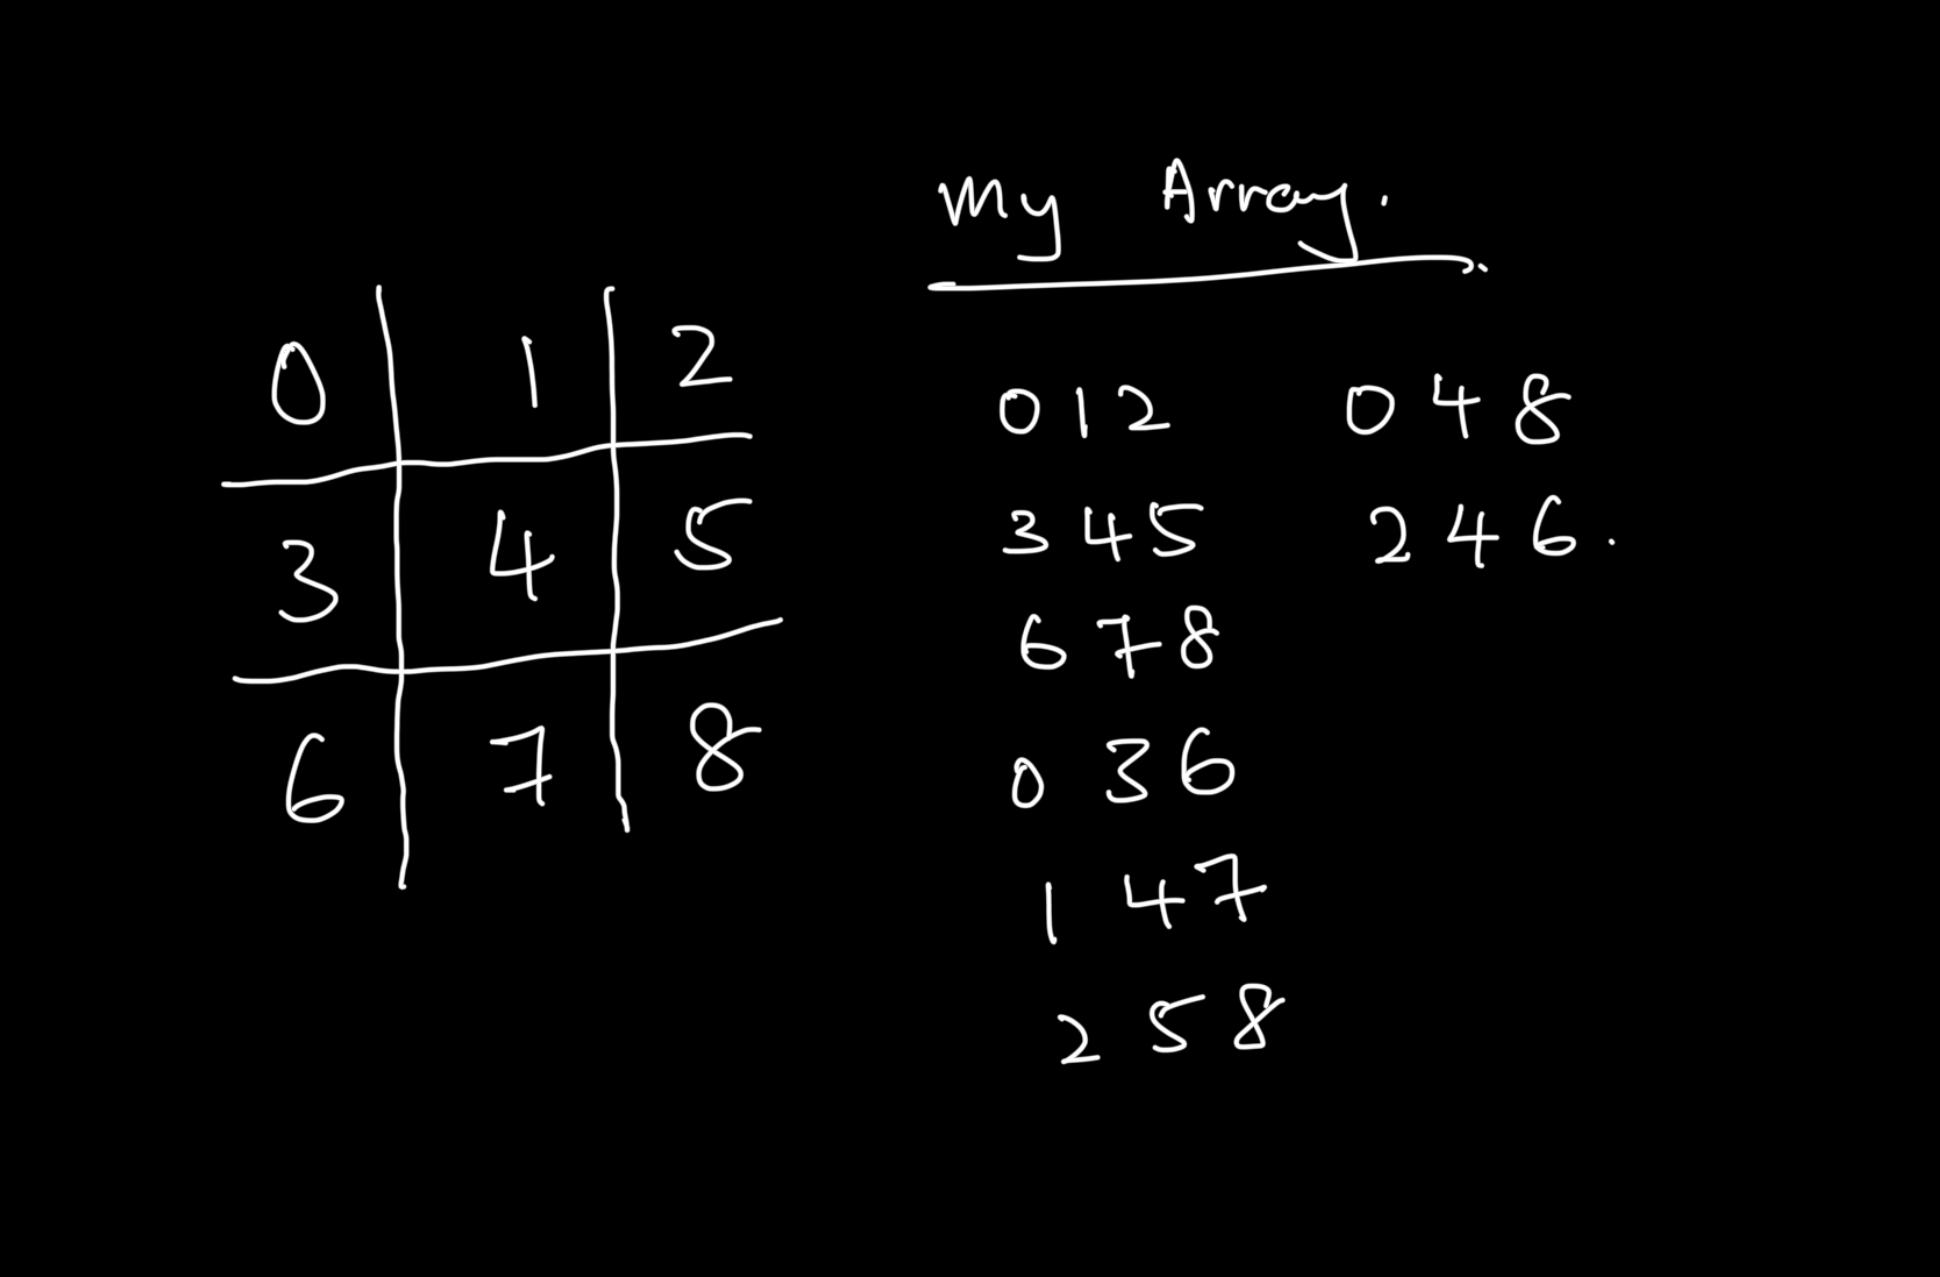 0 1 2
3 4 5
6 7 8
My Array.
0 1 2
3 4 5
6 7 8
0 3 6
1 4 7
2 5 8
0 4 8
2 4 6.